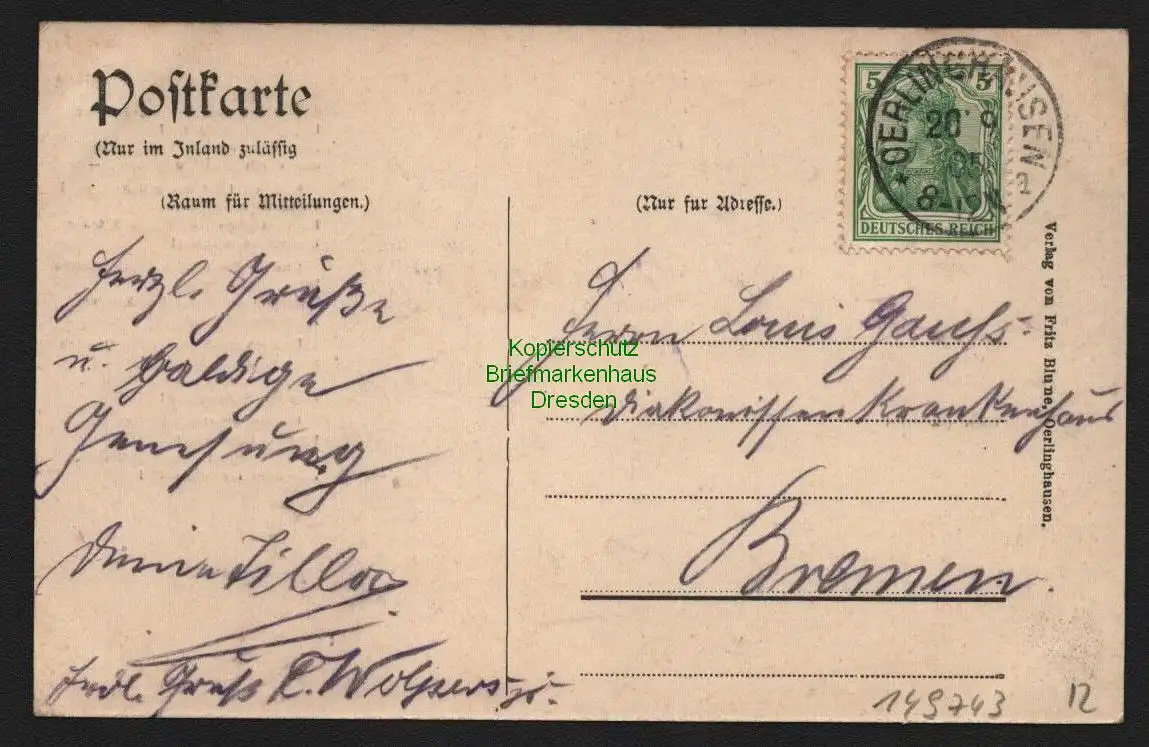 Postkarte
(Nur im Inland zulässig
(Raum für Mitteilungen.)
Herzl. Grüße
u. baldige
Genesung
Deine Tilla
Frdl. Gruß E. Wolpers
(Nur für Adresse.)
5 5
DEUTSCHES REICH
OERLINGHAUSEN
20 9
05
8
a
Herrn Louis Gauhs
Diakonissen Krankenhaus
Bremen.
Verlag von Fritz Blume, Oerlinghausen.
Kopierschutz
Briefmarkenhaus
Dresden
149743
12